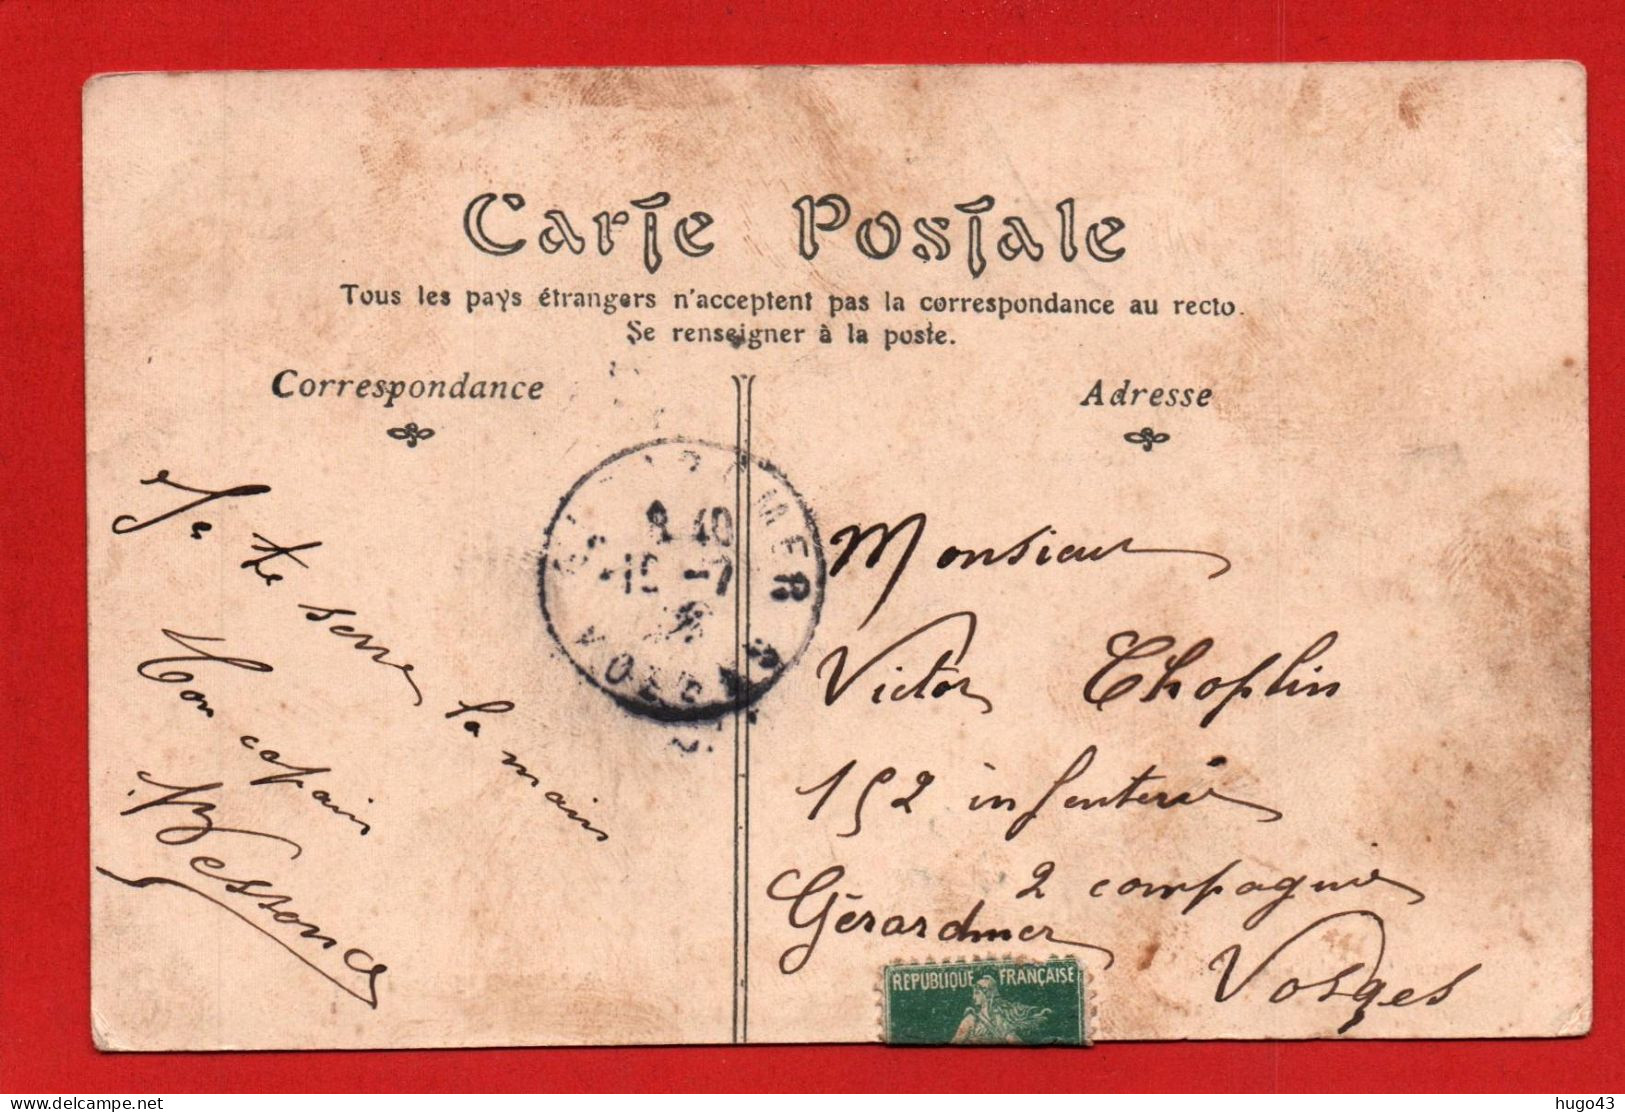 Carte Postale
Tous les pays étrangers n'acceptent pas la correspondance au recto.
Se renseigner à la poste.
Correspondance
Adresse
Je te serre la main
Mon copain
Bessonca
Monsieur
Victor Choplin
152 infanterie
2 compagnie
Gérardmer
Vosges
GERARDMER
8 40
15 -7
VOSGES
REPUBLIQUE FRANÇAISE
www.delcampe.net
hugo43